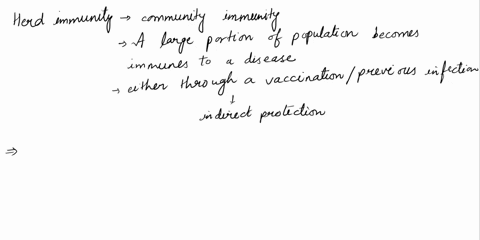 Herd immunity → community immunity
→ A large portion of population becomes
immunes to a disease
→ either through a vaccination / previous infection
↓
indirect protection
⇒